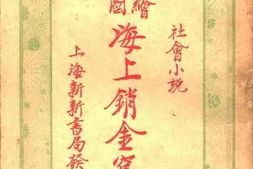 社會小説
繪圖
海上銷金窟
上海新新書局發